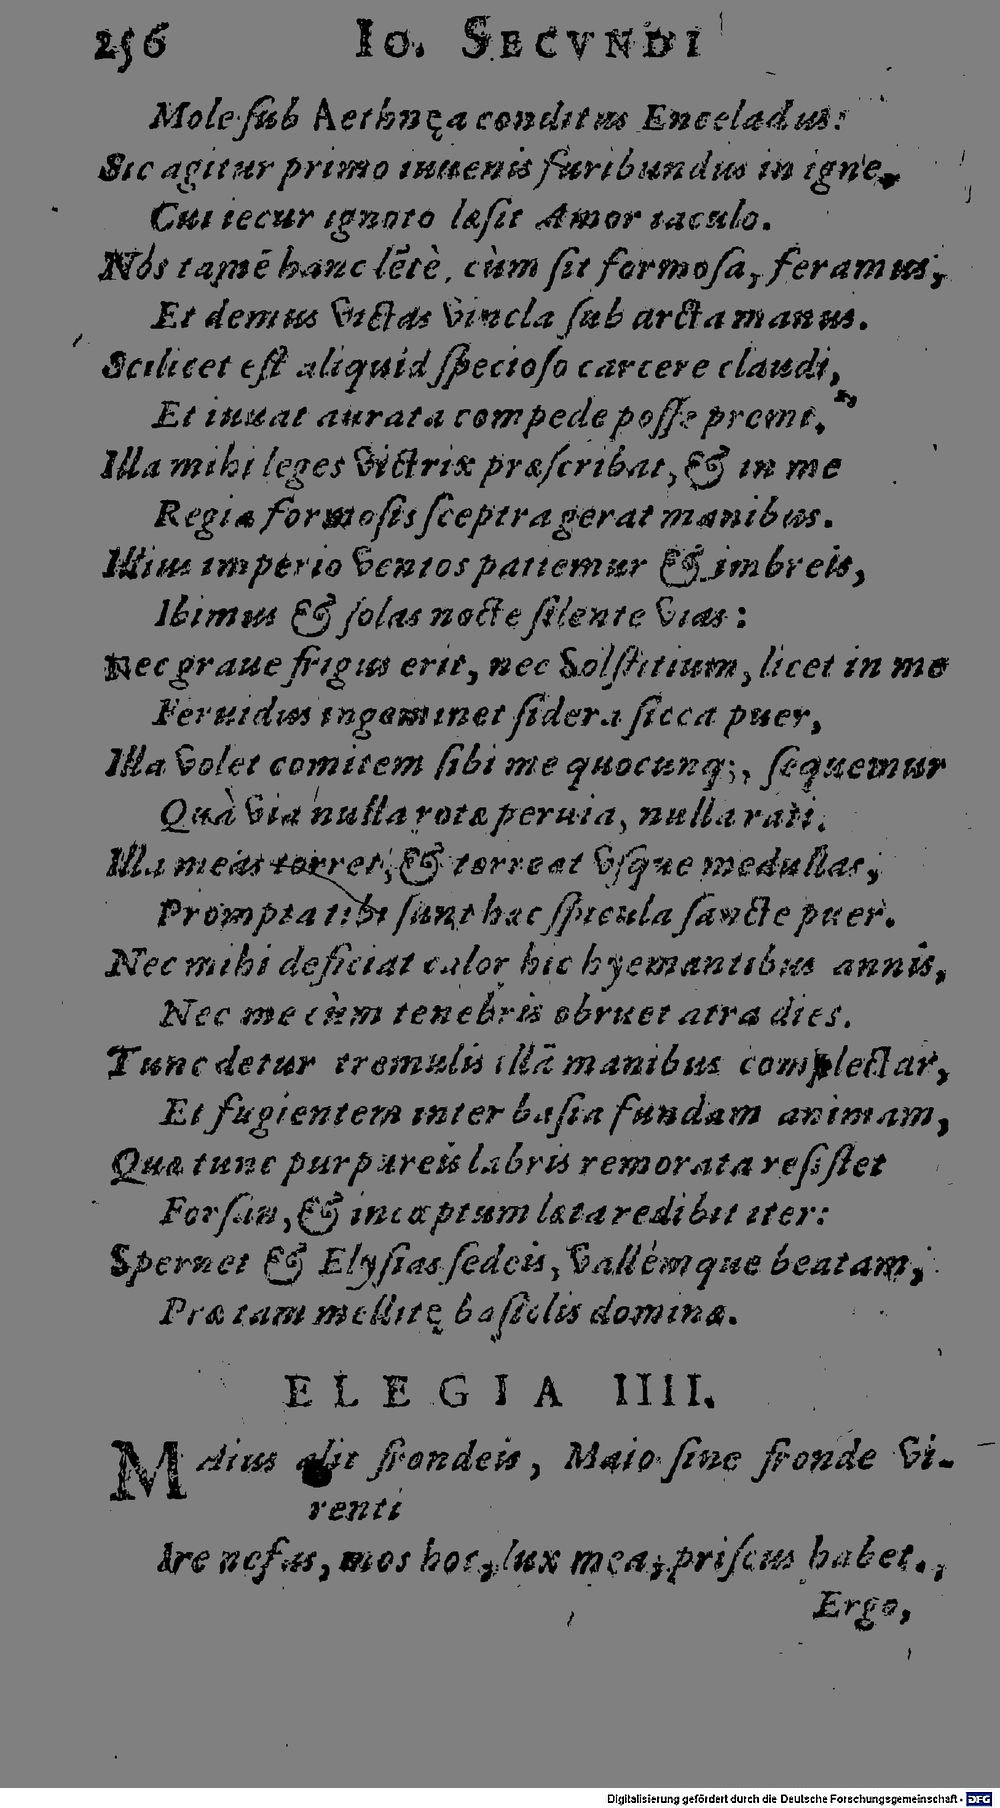 256 Io. Secvndi
Mole sub Aethnęa conditus Enceladus:
Sic agitur primo iuuenis furibundus in igne,
Cui iecur ignoto læsit Amor iaculo.
Nos tamē hanc lētè, cùm sit formosa, feramus,
Et demus victas vincla sub arcta manus.
Scilicet est aliquid specioso carcere claudi,
Et iuuat aurata compede posse premi.
Illa mihi leges victrix præscribat, & in me
Regia formosis sceptra gerat manibus.
Illius imperio ventos patiemur & imbreis,
Ibimus & solas nocte silente vias:
Nec graue frigus erit, nec Solstitium, licet in me
Feruidus ingeminet sidera sicca puer,
Illa volet comitem sibi me quocunq;, sequemur
Quà via nulla rotæ peruia, nulla rati.
Illa meas torret, & torreat vsque medullas,
Prompta tibi sunt hæc spicula sancte puer.
Nec mihi deficiat calor hic hyemantibus annis,
Nec me cùm tenebris obruet atra dies.
Tunc detur tremulis illā manibus complectar,
Et fugientem inter basia fundam animam,
Quæ tunc purpureis labris remorata resistet
Forsan, & incœptum læta redibit iter:
Spernet & Elysias sedeis, vallémque beatam,
Præ tam mellitę basiolis dominæ.
ELEGIA IIII.
Maius alit frondeis, Maio sine fronde vi-
renti
Ire nefas, mos hoc, lux mea, priscus habet.,
Ergo,
Digitalisierung gefördert durch die Deutsche Forschungsgemeinschaft - DFG